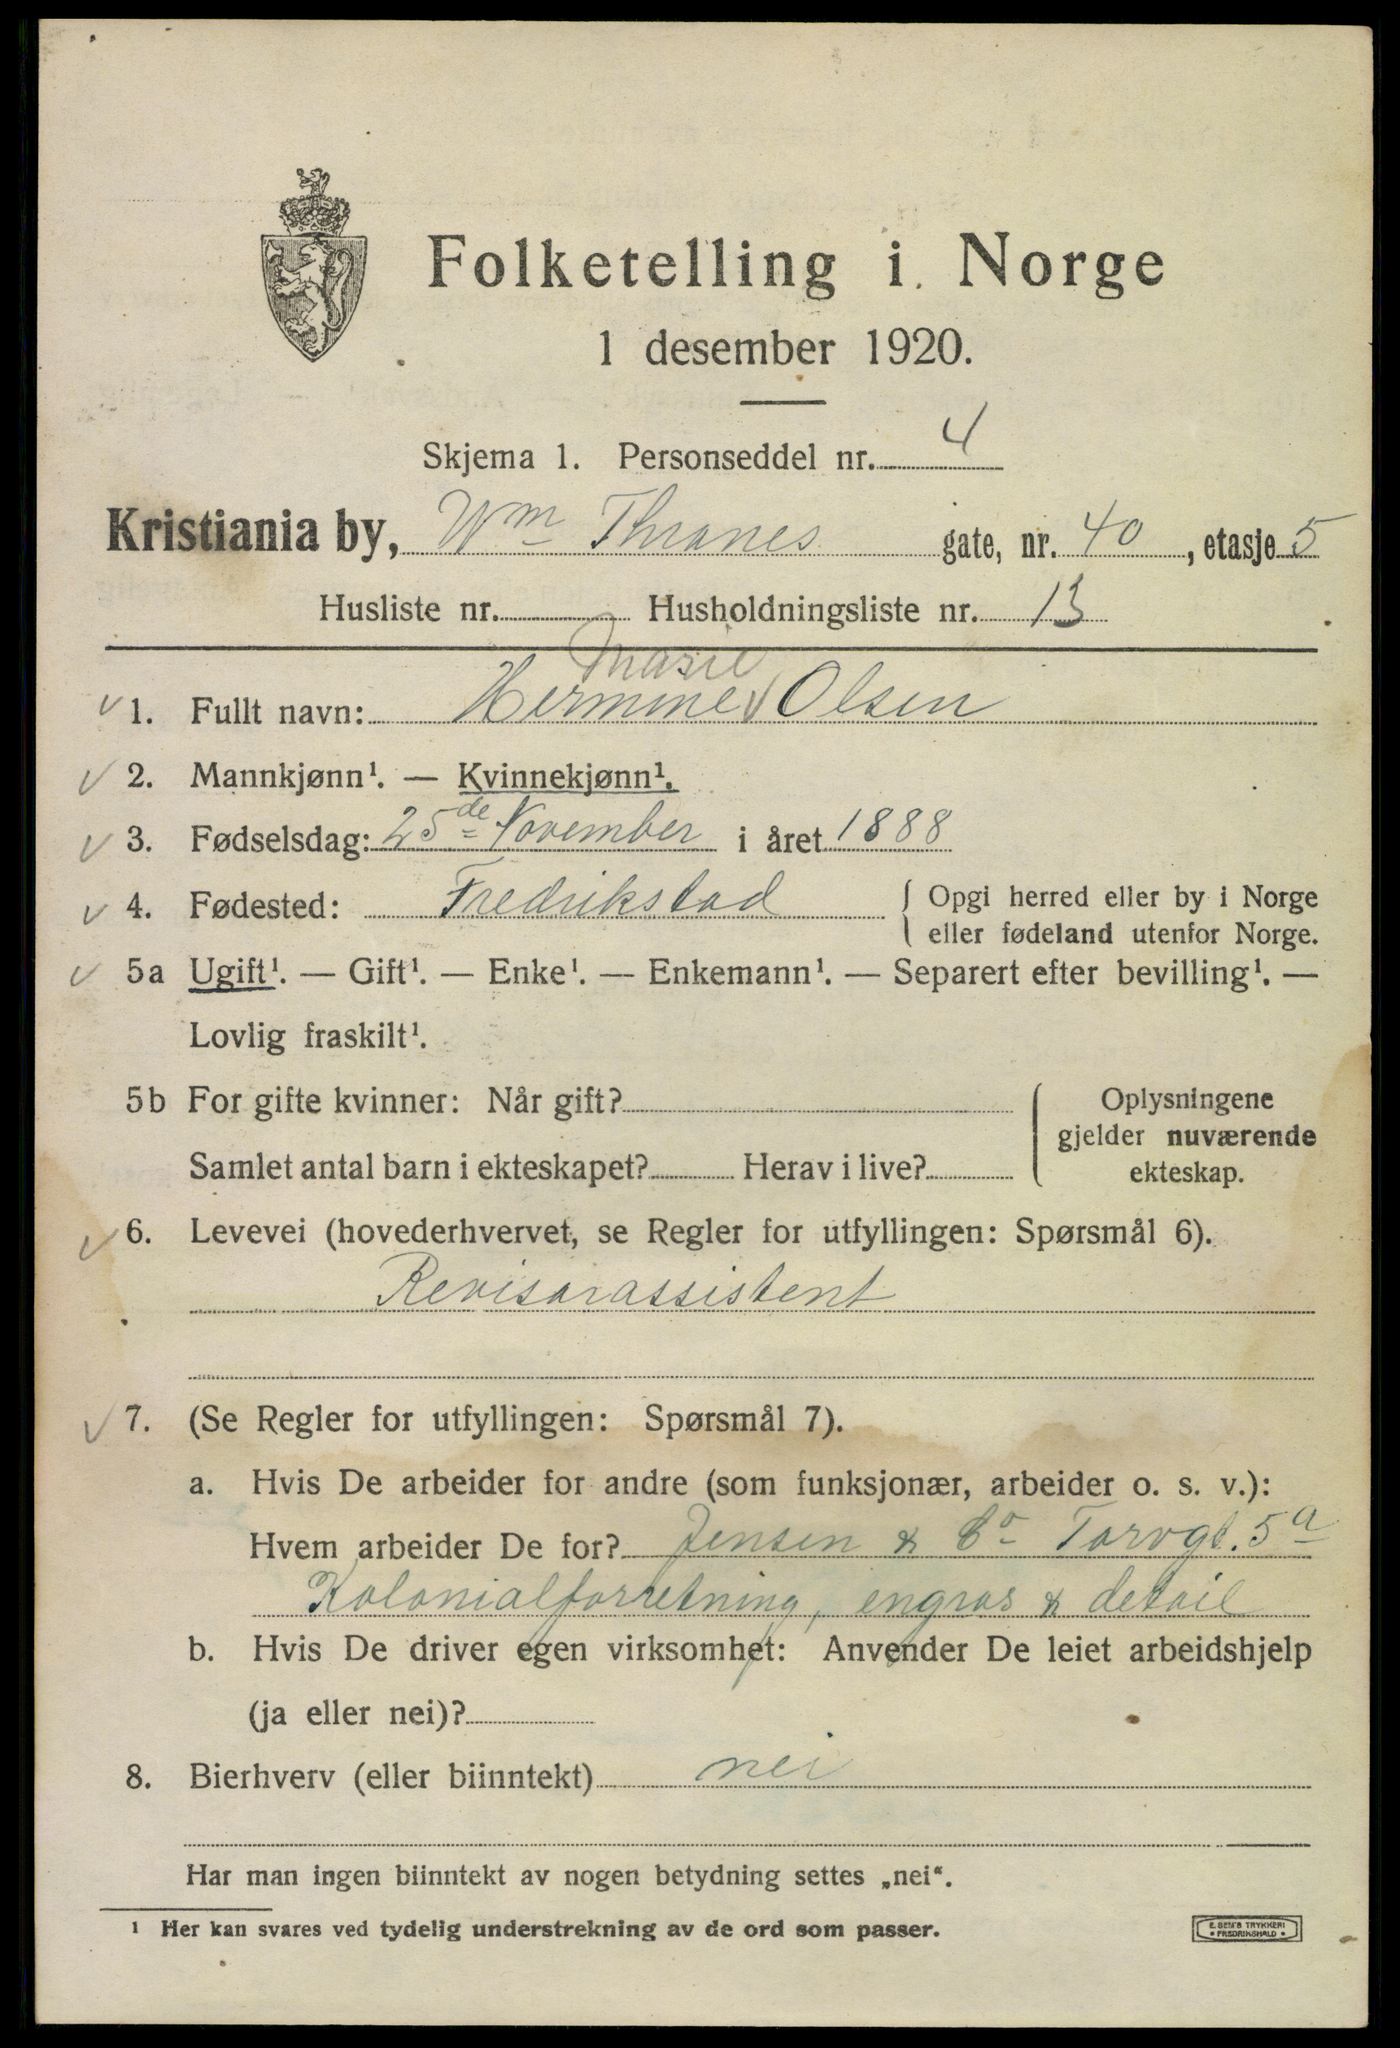 Folketelling i Norge
1 desember 1920.
Skjema 1. Personseddel nr. 4
Kristiania by, Wm Thranes gate, nr. 40, etasje 5
Husliste nr. Husholdningsliste nr. 13
Marie
1. Fullt navn: Hermine √ Olsen
2. Mannkjønn¹. — Kvinnekjønn¹.
3. Fødselsdag: 25de November i året 1888
4. Fødested: Fredrikstad { Opgi herred eller by i Norge
eller fødeland utenfor Norge.
5a Ugift¹. — Gift¹. — Enke¹. — Enkemann¹. — Separert efter bevilling¹. —
Lovlig fraskilt¹.
5b For gifte kvinner: Når gift? { Oplysningene
gjelder nuværende
Samlet antal barn i ekteskapet? Herav i live? ekteskap.
6. Levevei (hovederhvervet, se Regler for utfyllingen: Spørsmål 6).
Revisorassistent
7. (Se Regler for utfyllingen: Spørsmål 7).
a. Hvis De arbeider for andre (som funksjonær, arbeider o. s. v.):
Hvem arbeider De for? Jensen & Co Torvgt. 5a
Kolonialforretning, engros & detail
b. Hvis De driver egen virksomhet: Anvender De leiet arbeidshjelp
(ja eller nei)?
8. Bierhverv (eller biinntekt) nei
Har man ingen biinntekt av nogen betydning settes „nei“.
¹ Her kan svares ved tydelig understrekning av de ord som passer.
E. SEM'S TRYKKERI
* FREDRIKSHALD *